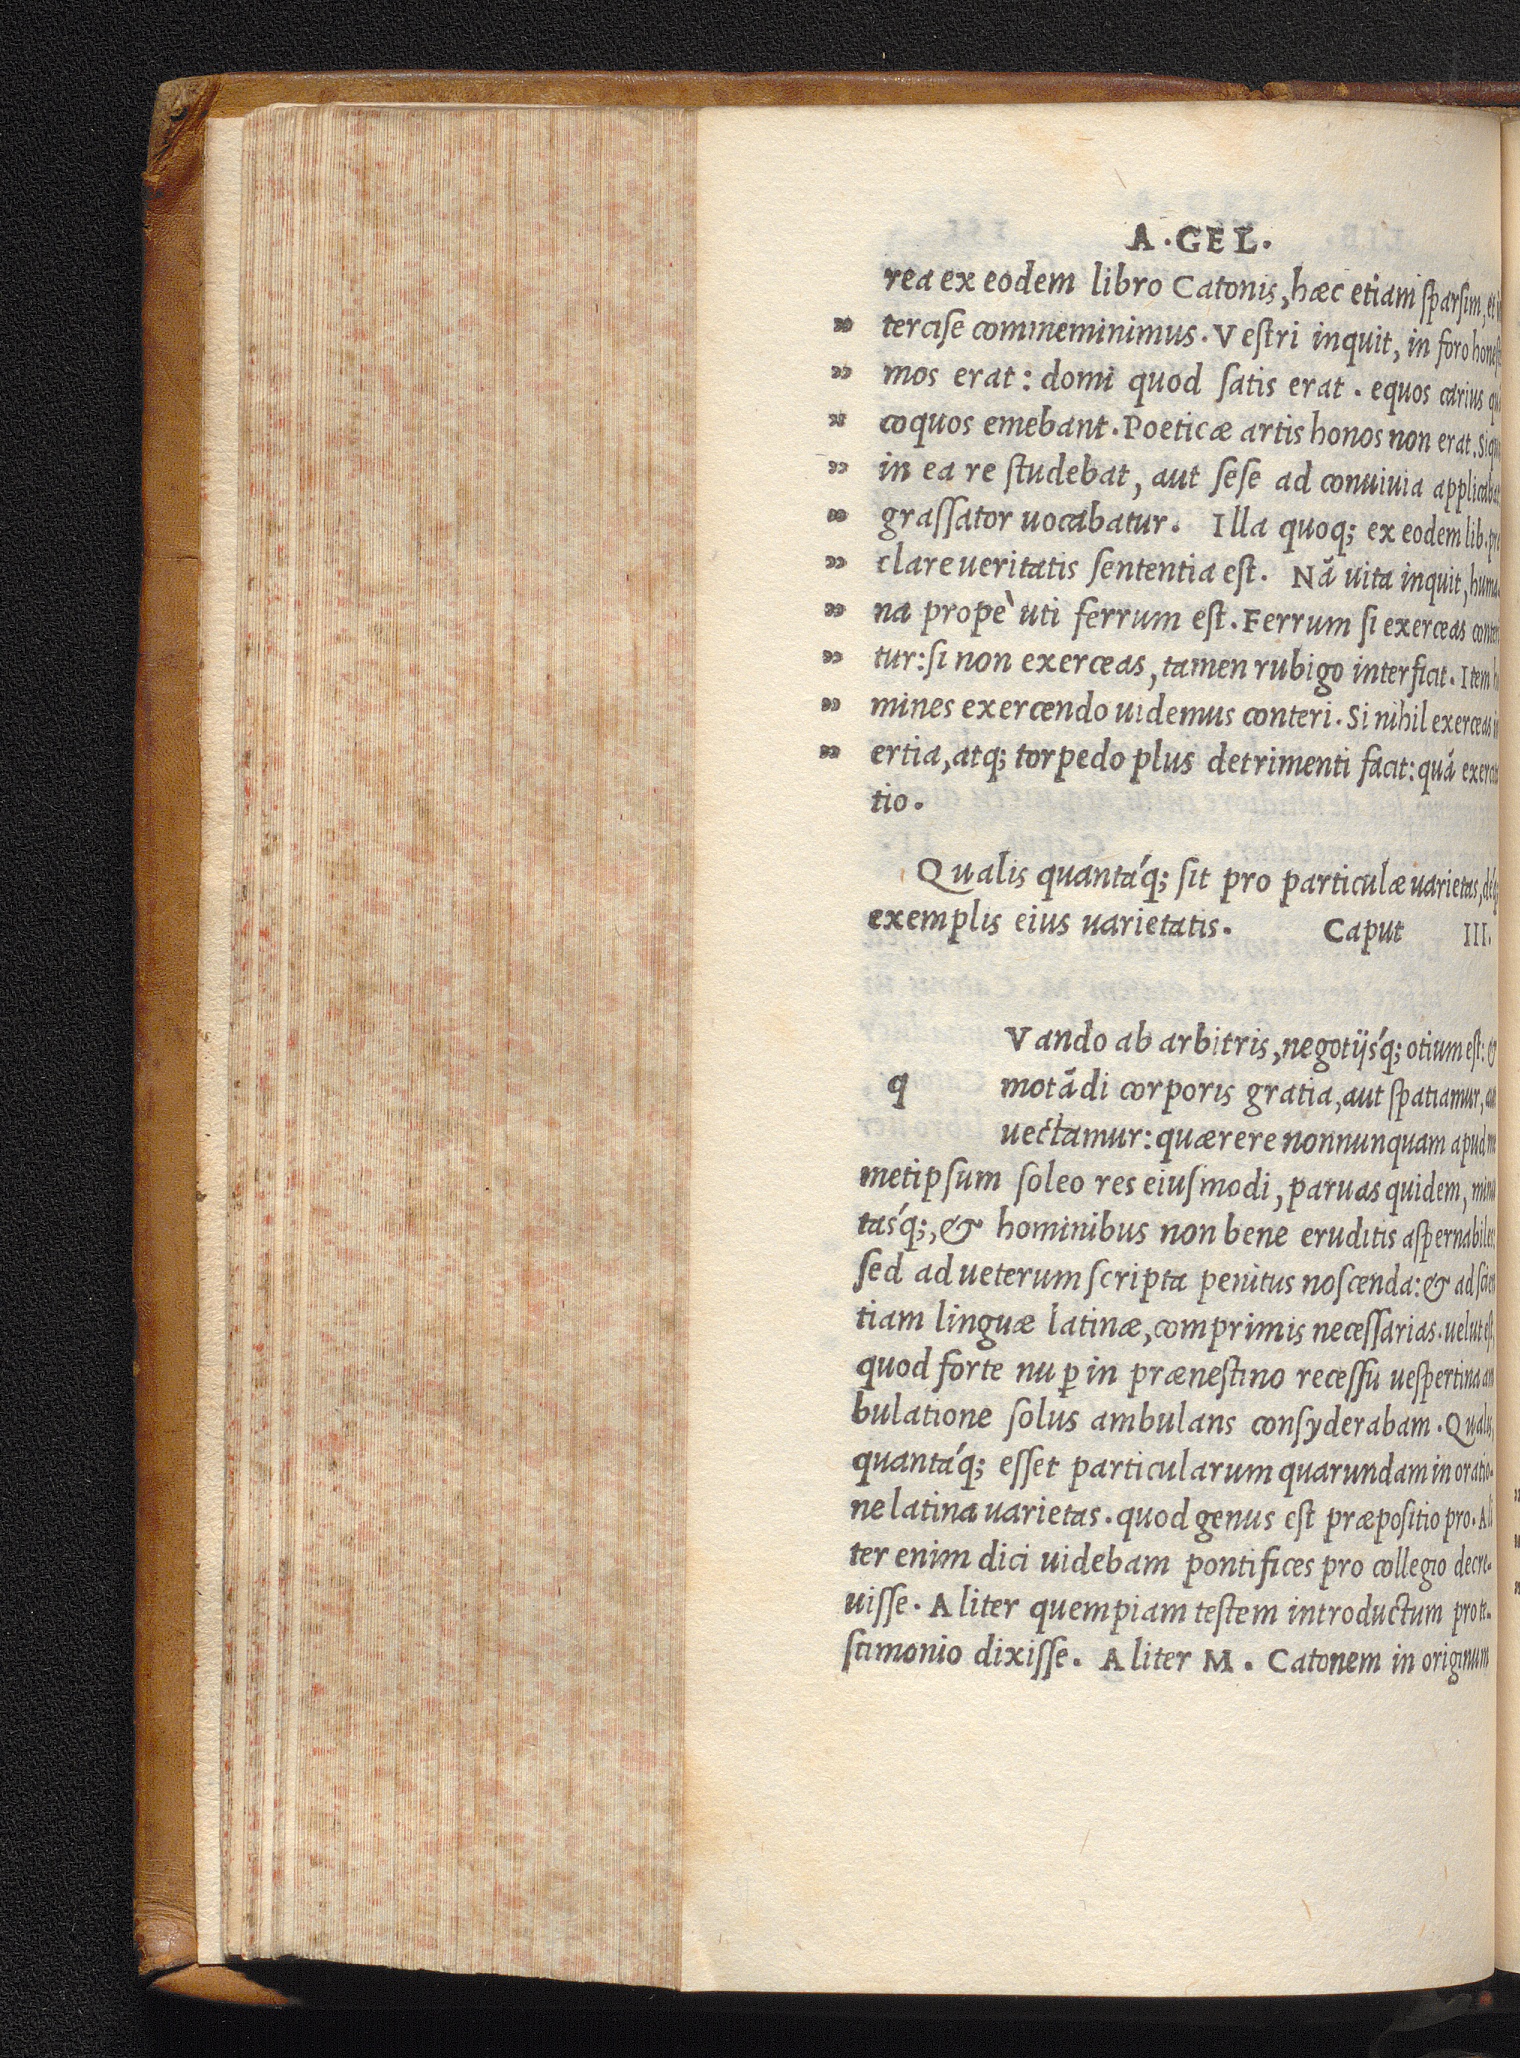 A.GEL.
rea ex eodem libro Catonis, hæc etiam sparsim, et
tercise commeminimus. Vestri inquit, in foro
mos erat: domi quod satis erat. equos carius
coquos emebant. Poeticæ artis honos non erat. Si
in ea re studebat, aut sese ad conuiuia
grassator uocabatur. Illa quoq; ex eodem lib.
clare ueritatis sententia est. Nã uita inquit, huma-
na propè uti ferrum est. Ferrum si exerceas
tur: si non exerceas, tamen rubigo interficit. Item
mines exercendo uidemus conteri. Si nihil exerceas
ertia, atq; torpedo plus detrimenti facit: quã
tio.
Qualis quantáq; sit pro particulæ uarietas,
exemplis eius uarietatis. Caput III.
Vando ab arbitris, negotijsq́; otium est: &
q motãdi corporis gratia, aut spatiamur,
uectamur: quærere nonnunquam apud
metipsum soleo res eiusmodi, paruas quidem,
tasq́;, & hominibus non bene eruditis aspernabiles
sed ad ueterum scripta penitus noscenda: & ad
tiam linguæ latinæ, comprimis necessarias. uelut est,
quod forte nuꝑ in prænestino recessu uespertina
bulatione solus ambulans consyderabam. Qualis
quantáq; esset particularum quarundam in oratio-
ne latina uarietas. quod genus est præpositio pro. Ali
ter enim dici uidebam pontifices pro collegio decre-
uisse. Aliter quempiam testem introductum pro te-
stimonio dixisse. Aliter M. Catonem in originum